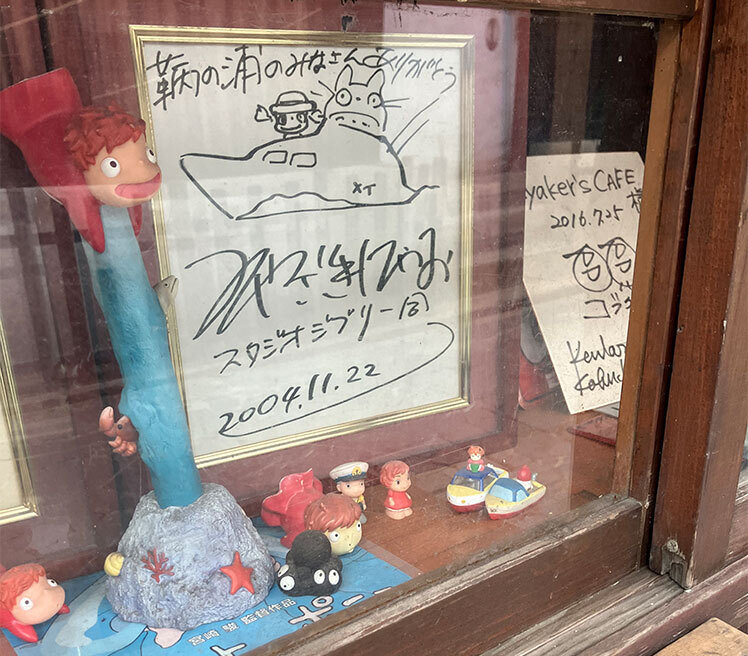 鞆の浦のみなさんありがとう
XT
みやざきはやお
スタジオジブリ一同
2004.11.22
yaker's CAFE
様
2016.7.25
宮崎 駿 監督作品